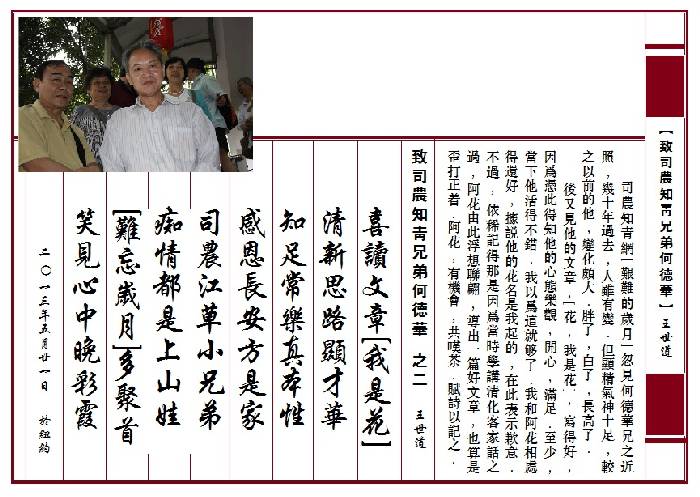 【致司農知靑兄弟何德華】王世道
司農知靑網—艱難的歲月—忽見何德華兄之近
照，幾十年過去，人雖有變．但顯精氣神十足，較
之以前的他，變化頗大．胖了，白了，長高了．
後又見他的文章，「花，我是花」，寫得好，
因爲憑此得知他的心態樂觀，開心，滿足．至少，
當下他活得不錯．我以爲這就够了．我和阿花相處
得還好，據說他的花名是我起的，在此表示歉意．
不過，依稀記得那是因爲當時學講清化客家話之
過，阿花由此浮想聯翩，導出一篇好文章，也算是
歪打正着．阿花，有機會，共嘆茶．賦詩以記之．
致司農知靑兄弟何德華 之二 王世道
喜讀文章[我是花]
清新思路顯才華
知足常樂真本性
感恩長安方是家
司農江草小兄弟
痴情都是上山娃
[難忘歲月]多聚首
笑見心中晚彩霞
二〇一三年五月廿一日 於紐約